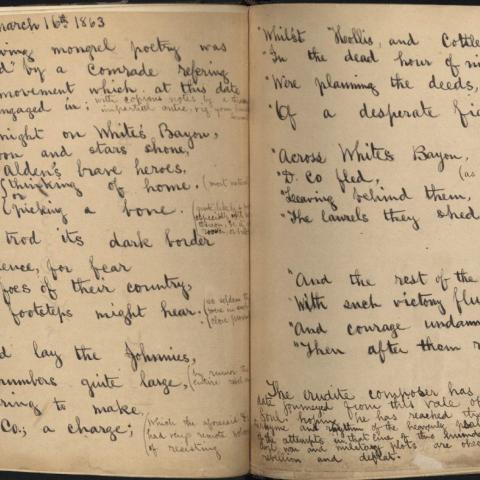 March 16th 1863
ving mongrel poetry was
d" by a Comrade refering
movement which at this date
engaged in: with copious notes by a
impartial
night on White's Bayou,
oon and stars shone,
Alden's brave heroes,
thinking of home. (most natural
or
picking a bone. (quite likely
especially
trod its dark border
ence, for fear
foes of their country,
footsteps might hear. (as seldom
were in
close
d lay the Johnnies,
numbers quite large, (by rumor the
entire
ring to make
Co.; a charge; (Which the aforesaid D.
had very remote
of resisting
"Whilst Hollis, and Cottle
"In the dead hour of ni
"Were planning the deeds,
"Of a desperate fi
"Across White's Bayou,
"D. Co fled, (as
"Leaving behind them,
"The laurels they shed
"And the rest of the
"With such victory flu
"And courage undaun
"Then after them r
The erudite composer has
journeyed from this vale of
Soul hoping he has reached the
rhythm of the heavenly
of the attempts in that line of two
that won and military plots are
rebellion and defeat.